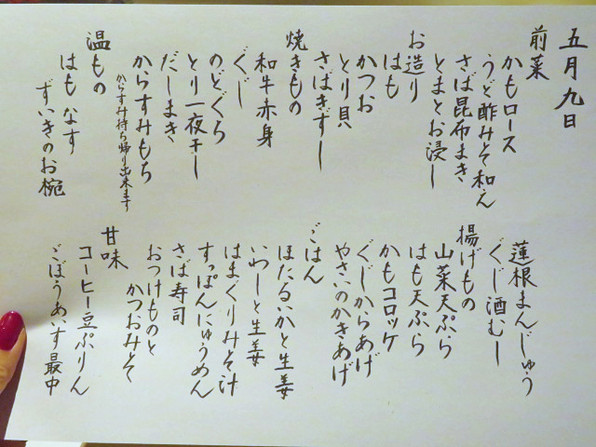 五月九日
前菜
かもロース
うど酢みそ和え
さば昆布まき
とまとお浸し
お造り
はも
かつお
とり貝
さばきずし
焼きもの
和牛赤身
ぐじ
のどぐろ
とり一夜干し
だしまき
からすみもち
からすみ持ち帰り出来ます
温もの
はも なす
ずいきのお椀
蓮根まんじゅう
ぐじ酒むし
揚げもの
山菜天ぷら
はも天ぷら
かもコロッケ
ぐじからあげ
やさいのかきあげ
ごはん
ほたるいかと生姜
いわしと生姜
はまぐりみそ汁
すっぽんにゅうめん
さば寿司
おつけものと
かつおみそ
甘味
コーヒー豆ぷりん
ごぼうあいす最中